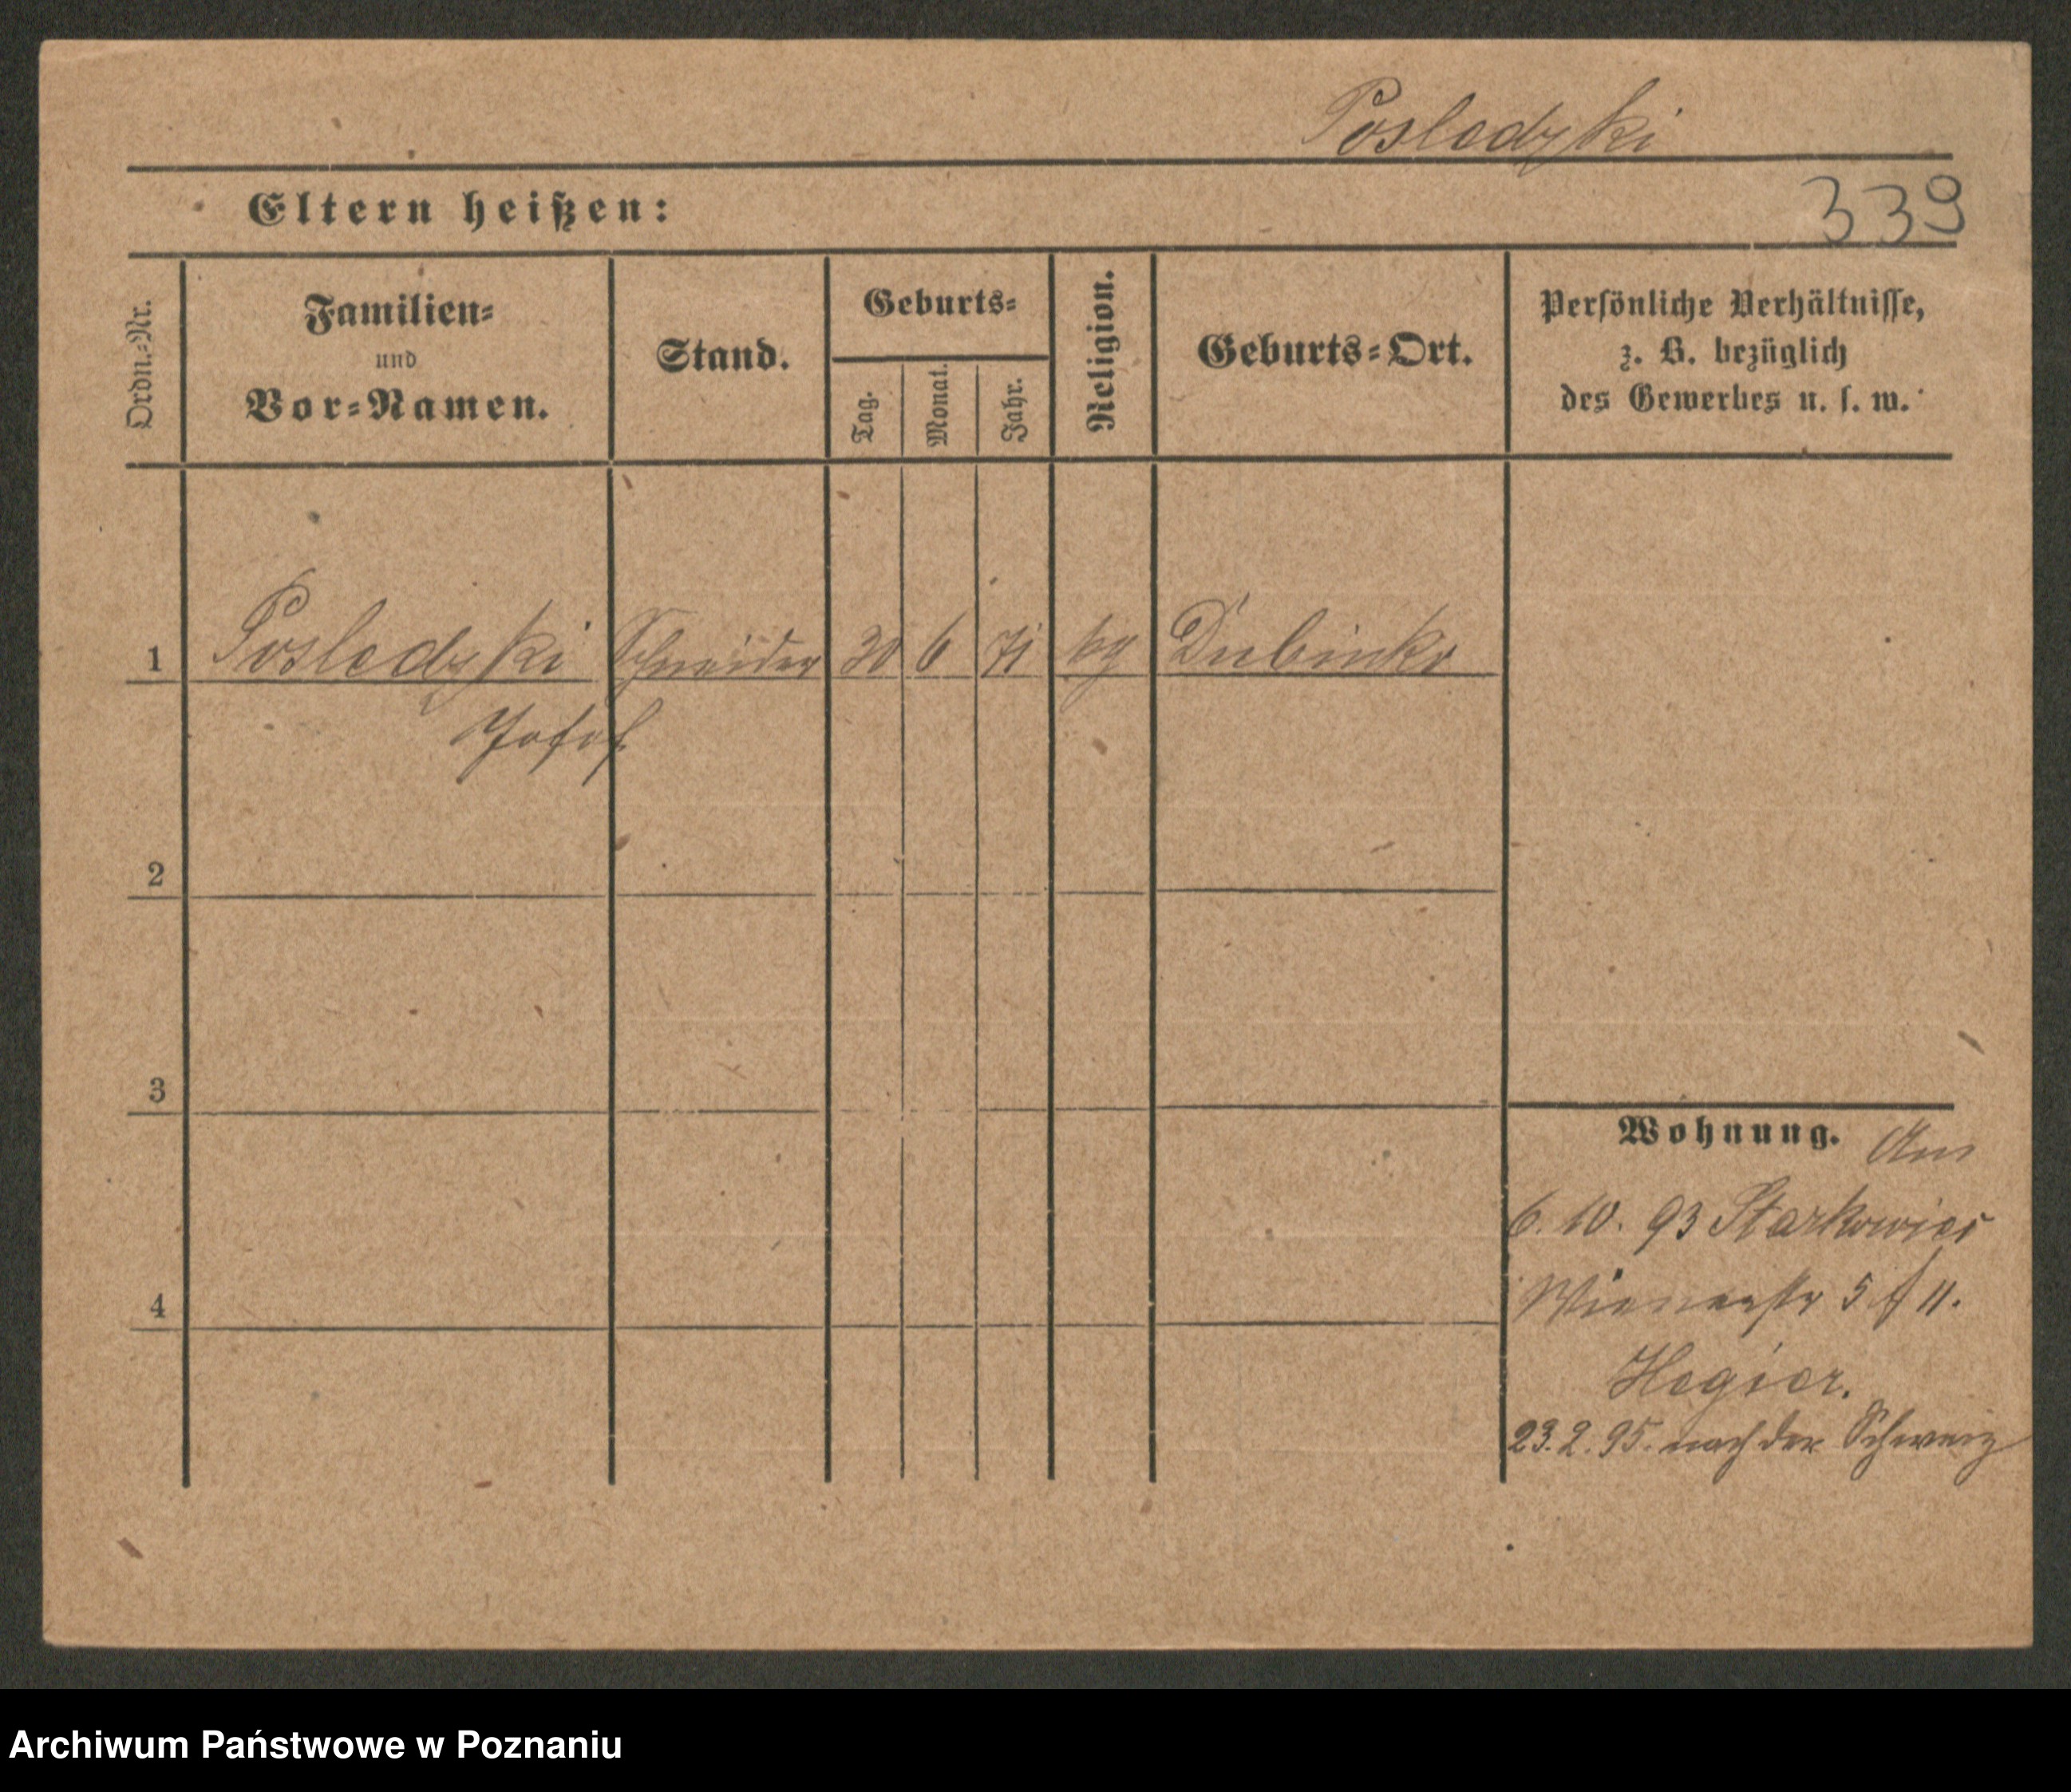 Posledzki
Eltern heißen:
339
Ordn.-Nr.
Familien-
und
Vor-Namen.
Stand.
Geburts-
Tag.
Monat.
Jahr.
Religion.
Geburts-Ort.
Persönliche Verhältnisse,
z. B. bezüglich
des Gewerbes u. s. w.
1 Posledzki Schneider 30 6 71 kg Dubinko
Josef
2
3
Wohnung. Am
6. 10. 93 Starkowiec
4
Wienerstr 5 f 11.
Hegier.
23. 2. 95. nach der Schweiz
Archiwum Państwowe w Poznaniu